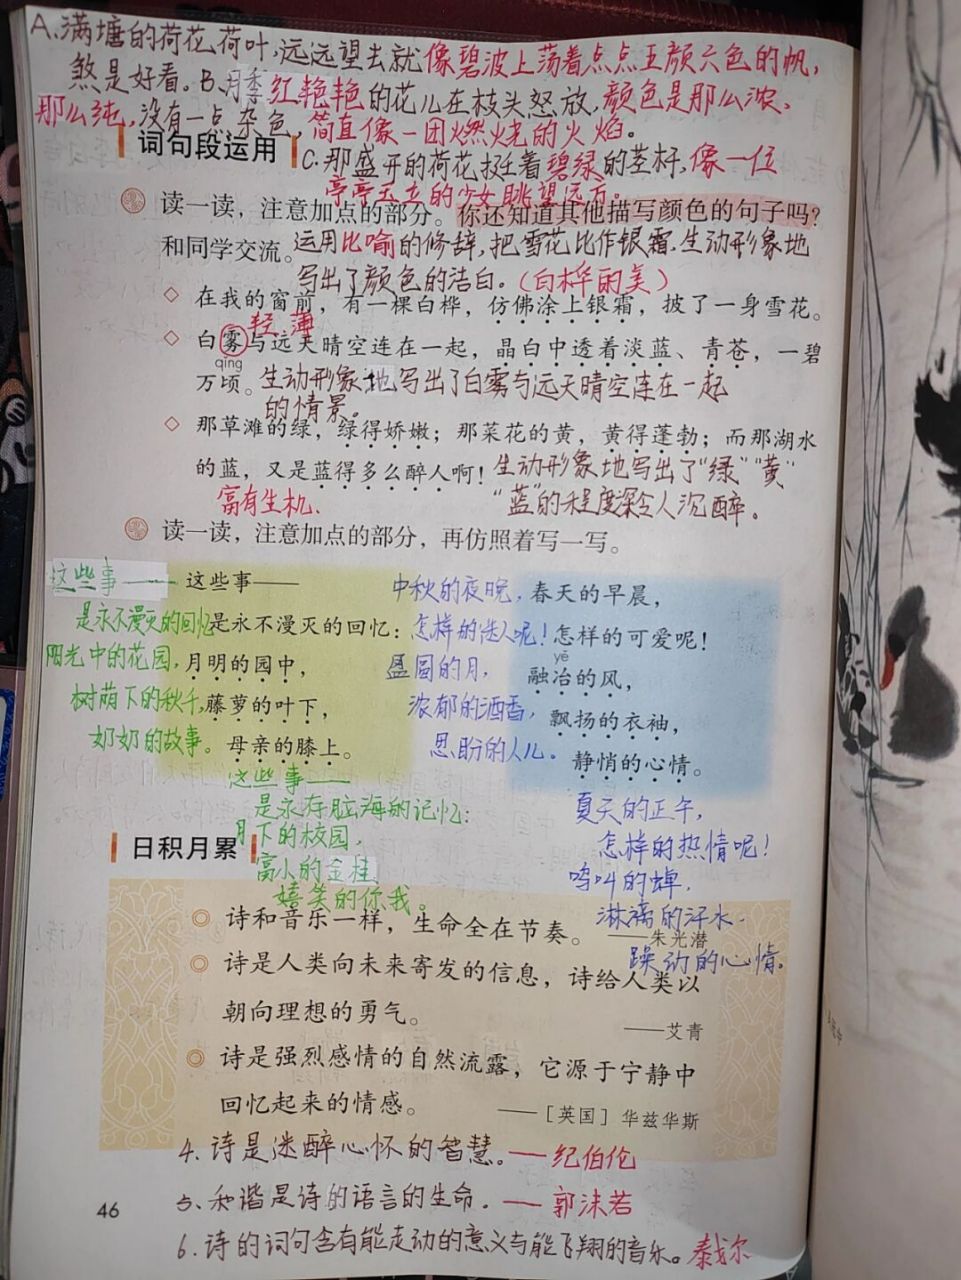 A.满塘的荷花,荷叶,远远望去就像碧波上荡着点点五颜六色的帆,
煞是好看。B.月季红艳艳的花儿在枝头怒放,颜色是那么浓、
那么纯,没有一点杂色,简直像一团燃烧的火焰。
词句段运用
C.那盛开的荷花挺着碧绿的茎杆,像一位
亭亭玉立的少女眺望远方。
读一读，注意加点的部分。你还知道其他描写颜色的句子吗？
和同学交流。运用比喻的修辞,把雪花比作银霜.生动形象地
写出了颜色的洁白。(白桦的美)
◇ 在我的窗前，有一棵白桦，仿佛涂上银霜，披了一身雪花。
轻薄
◇ 白雾与远天晴空连在一起，晶白中透着淡蓝、青苍，一碧
qǐng
万顷。生动形象地写出了白雾与远天晴空连在一起
的情景。
◇ 那草滩的绿，绿得娇嫩；那菜花的黄，黄得蓬勃；而那湖水
的蓝，又是蓝得多么醉人啊！生动形象地写出了“绿”“黄”
富有生机、
“蓝”的程度深令人沉醉。
读一读，注意加点的部分，再仿照着写一写。
这些事——
是永不漫灭的回忆
阳光中的花园,
树荫下的秋千,
奶奶的故事。
这些事——
是永不漫灭的回忆：
月明的园中，
藤萝的叶下，
母亲的膝上。
这些事——
是永存脑海的记忆:
月下的校园,
高小的金桂
嬉笑的你我。
中秋的夜晚,
怎样的迷人呢!
圆的月,
浓郁的酒香,
思盼的人儿。
春天的早晨，
怎样的可爱呢！
yě
融冶的风，
飘扬的衣袖，
静悄的心情。
夏天的正午,
怎样的热情呢!
鸣叫的蝉,
淋漓的汗水.
躁动的心情。
日积月累
◎ 诗和音乐一样，生命全在节奏。 ——朱光潜
◎ 诗是人类向未来寄发的信息，诗给人类以
朝向理想的勇气。
——艾青
◎ 诗是强烈感情的自然流露，它源于宁静中
回忆起来的情感。
——［英国］华兹华斯
4.诗是迷醉心怀的智慧。——纪伯伦
5.和谐是诗的语言的生命.——郭沫若
46
6.诗的词句含有能走动的意义与能飞翔的音乐。泰戈尔